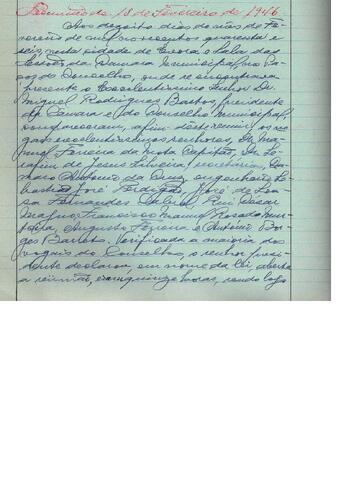 Reunião de 18 de Fevereiro de 1946
Aos dezoito dias do mês de Fe-
vereiro de mil novecentos quarenta e
seis, nesta cidade de Evora e Sala das
Sessões da Camara Municipal, nos Pa-
ços do Concelho, onde se encontrava
presente o Excelentissimo Senhor Dr.
Miguel Rodrigues Bastos, presidente
da Camara e do Conselho Municipal,
compareceram, afim deste reunir, os vo-
gais excelentissimos senhores, Dr. Ma-
nuel Ferreira da Mota Capitão, Dr. Se-
rafim de Jesus Silveira,
António da Cruz, engenheiro Se-
bastião José Perdigão, José de Sou-
sa Fernandes, Gabriel Rui
Francisco Manuel Rosado
Augusto Ferreira e António Bor-
ges Barreto. Verificada a maioria dos
vogais do Conselho, o senhor presi-
dente declarou, em nome da lei, aberta
a reunião, eram quinze horas, sendo logo